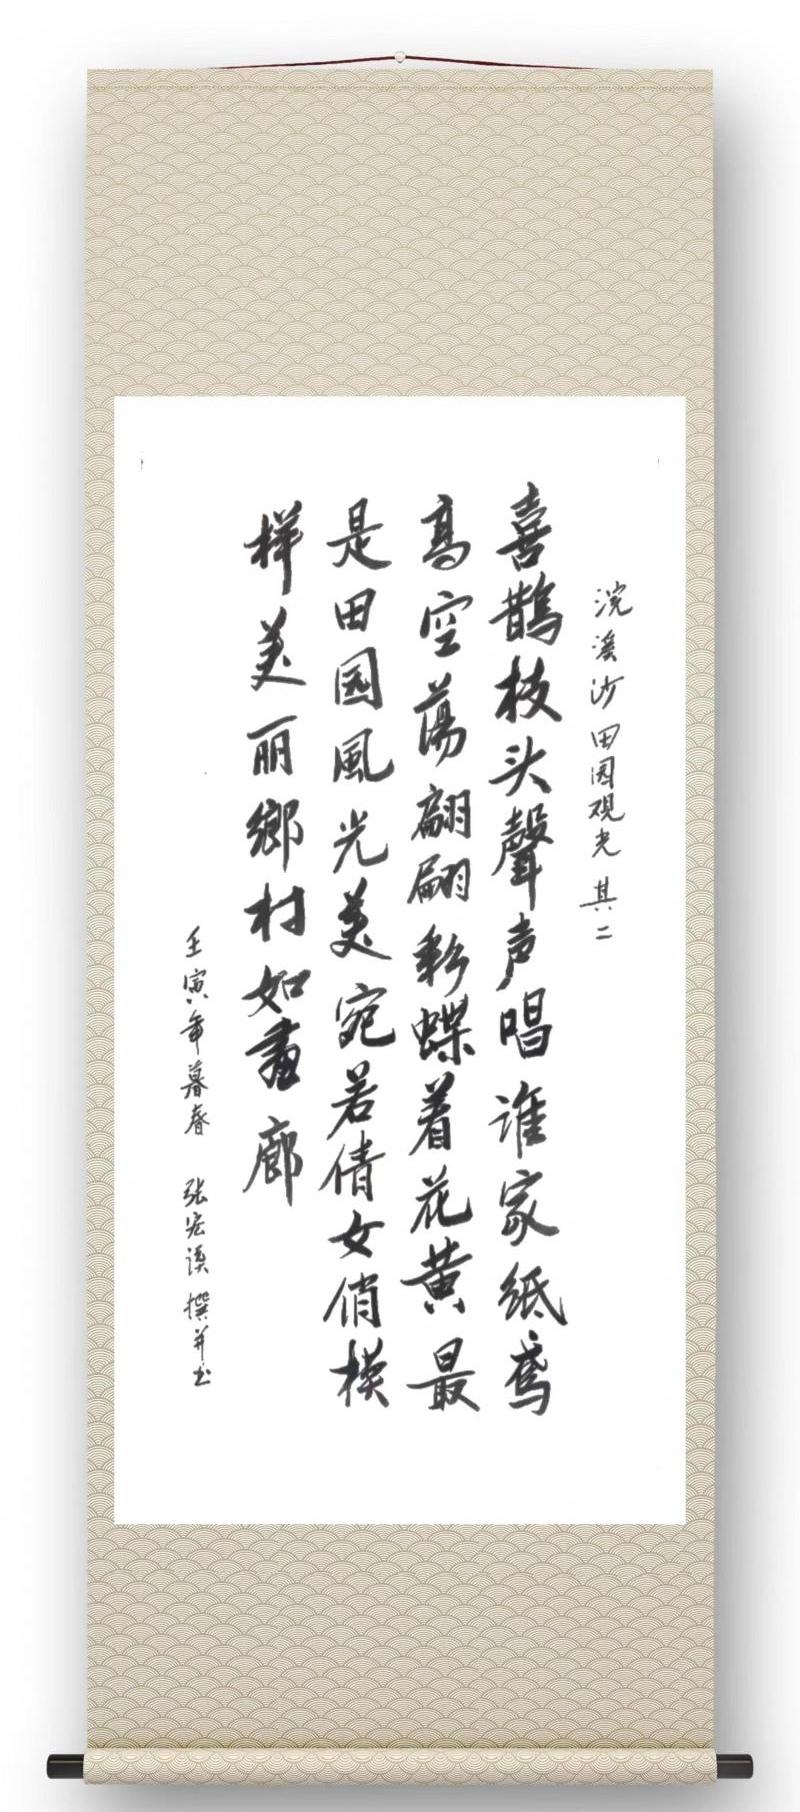 浣溪沙 田园观光 其二
喜鹊枝头聲声唱谁家纸鸢
高空荡翩翩彩蝶着花黄最
是田园風光美宛若倩女俏模
样美丽鄉村如畫廊
壬寅年暮春 张宏谟 撰并书